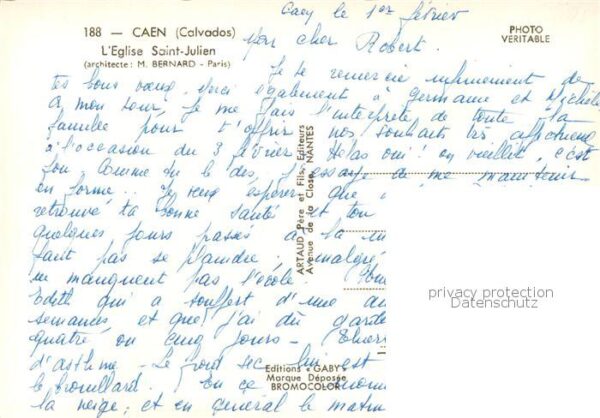 188 — CAEN (Calvados)
L'Eglise Saint-Julien
(architecte : M. BERNARD - Paris)
PHOTO
VERITABLE
le 1er février
Mon cher Robert.
Je te remercie infiniment de
tes bons vœux, merci également à Germaine et Michèle
A mon tour je me fais l'interprète de toute la
famille pour t'offrir nos souhaits très affectueux
à l'occasion du 3 février. Hélas oui ! on vieillit, c'est
bon comme tu le dis, j'essaye de me maintenir
en forme... Je veux espérer que
retrouvé ta bonne santé et ton
quelques jours passés à la
faut pas se plaindre ; malgré
ne manquent pas l'école.
Edith qui a souffert d'une
semaines et que j'ai dû garder
quatre ou cinq jours -
d'asthme - Le froid sec lui est
le brouillard. En ce
la neige ; et en général le matin
ARTAUD Père et Fils, Editeurs
Avenue de la Close, NANTES
Editions «GABY»
Marque Déposée
BROMOCOLOR
privacy protection
Datenschutz